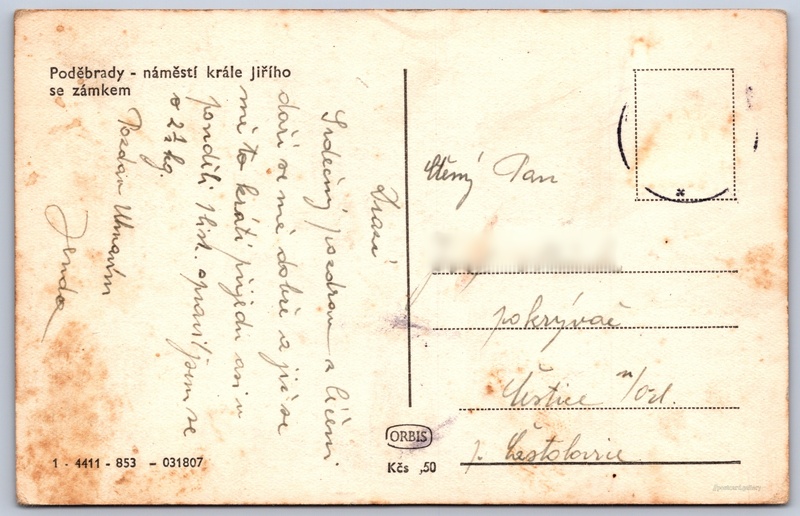 Poděbrady - náměstí krále Jiřího
se zámkem
Drazí
Srdečný pozdrav z léčení.
daří se mě dobře a již se
mě to krátí přijedu asi v
pondělí 1 list. spravil jsem se
o 2½ kg.
Pozdrav
Jenda
Ctěný Pan
pokrývač
Čestice n/Orl.
p. Častolovice
ORBIS
Kčs ,50
1 - 4411 - 853 - 031807